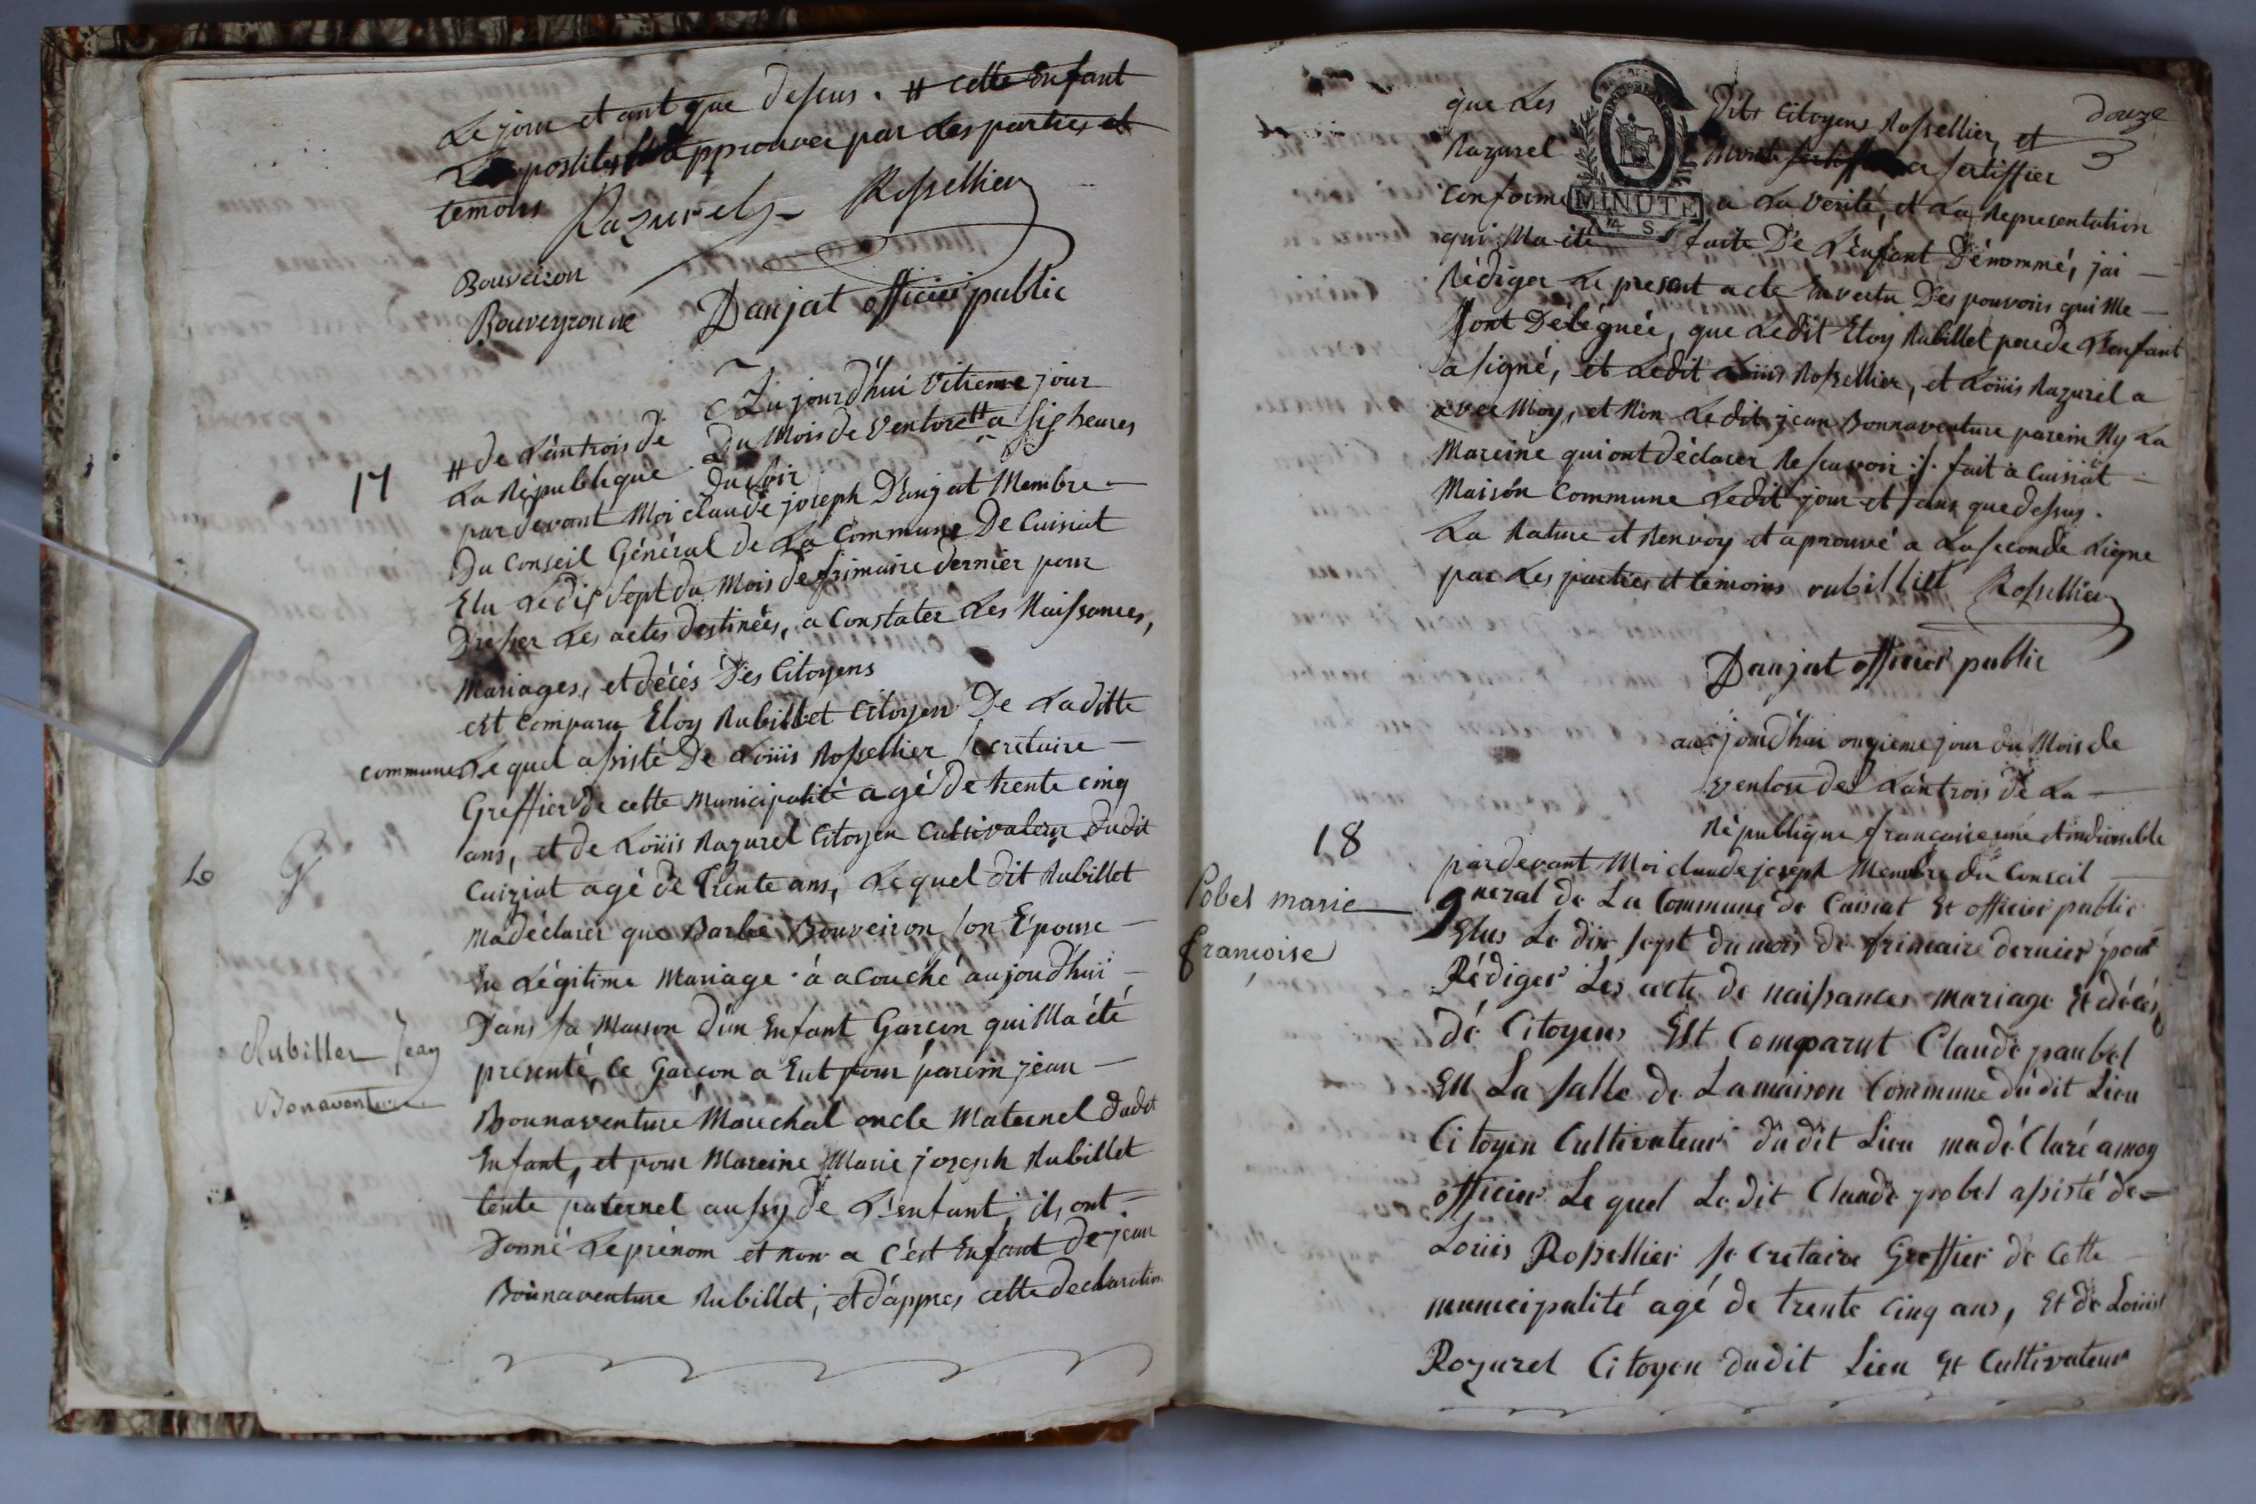 Le jour et ant que dessus. # cette Enfant
postile approuvee par Les parties et
temoins
Razurel Rossellier
Bouveiron
Bouveyronne Danjat officier public
Aujourd'hui Vitieme jour
# de L'antrois de Du Mois de Ventore # a six heures
17 La République Du soir
par devant Moi claude joseph Danjat Membre
Du Conseil Général de La Commune De Cuisiat
Elu Le dix sept du Mois de frimaire dernier pour
Dresser Les actes destinées, a Constater Les Naissances,
Mariages, et décés Des Citoyens
est comparu Eloy Rubillet Citoyen De La ditte
commune Le quel assisté De Loüis Rossellier secretaire
Greffier de cette Municipalité agé de trente cinq
ans, et de Loüis Razurel Citoyen Cultivateur Dudit
Cuiziat agé de Trente ans, Lequel dit Rubillet
Ma déclarer que Barbe Bouveiron son Epouse
En Légitime Mariage à acouché aujoud'hui
Dans sa Maison d'un Enfant Garcon qui Ma été
Rubillet Jean
presenté, Ce Garcon a Eut pour parein jean
Bonaventure
Bonnaventure Marechal oncle Maternel dudit
Enfant, et pour Mareine Marie joseph Rubillet
tente paternel aussy de L'enfant, ils ont
Donné Le prénom et nom a c'est Enfant de jean
Bonnaventure Rubillet, et d'appres cette declaration
douze
que Les Dits Citoyens Rossellier, et
Razurel Mont sertiffier
Conforme a La Verité, et La Representation
MINUTE
qui Ma été faite De L'enfant Dénommé, jai
Rédiger Le present acte En vertu Des pouvoirs qui Me
sont Déléguée, que Ledit Eloy Rubillet pere de L'enfant
a signé, et Ledit Loüis Rossellier, et Loüis Razurel a
avec Moy, et Non Le dit jean Bonnaventure parein Ny La
Mareine qui ont déclarer Ne scavoir :/. fait à Cuisiat
Maison Commune Ledit jour et ans que dessus.
La Rature et Renvoy et aprouvé a La seconde Ligne
par Les parties et temoins rubilliet Rossellier
Danjat officier public
aujourd'hui onzieme jour du Mois de
ventose de L'antrois de La
République francaise une et indivisible
18
par devant Moi claude joseph Membre du Conseil
Pobel marie
General de La Commune de Cuisiat Et officier public
francoise
Elus Le dix sept du mois de frimaire dernier pour
Rédiger Les acte de naissances mariage Et décés
dé Citoyens Est Comparut Claude paubel
En La salle de La maison Commune dudit Lieu
Citoyen Cultivateur dudit Lieu ma déClaré a moy
officier Le quel Le dit Claude pobel assisté de
Loüis Rossellier se cretaire Greffier de Cette
municipalité agé de trente Cinq ans, Et de Loüis
Rozurel Citoyen dudit Lieu Et Cultivateur